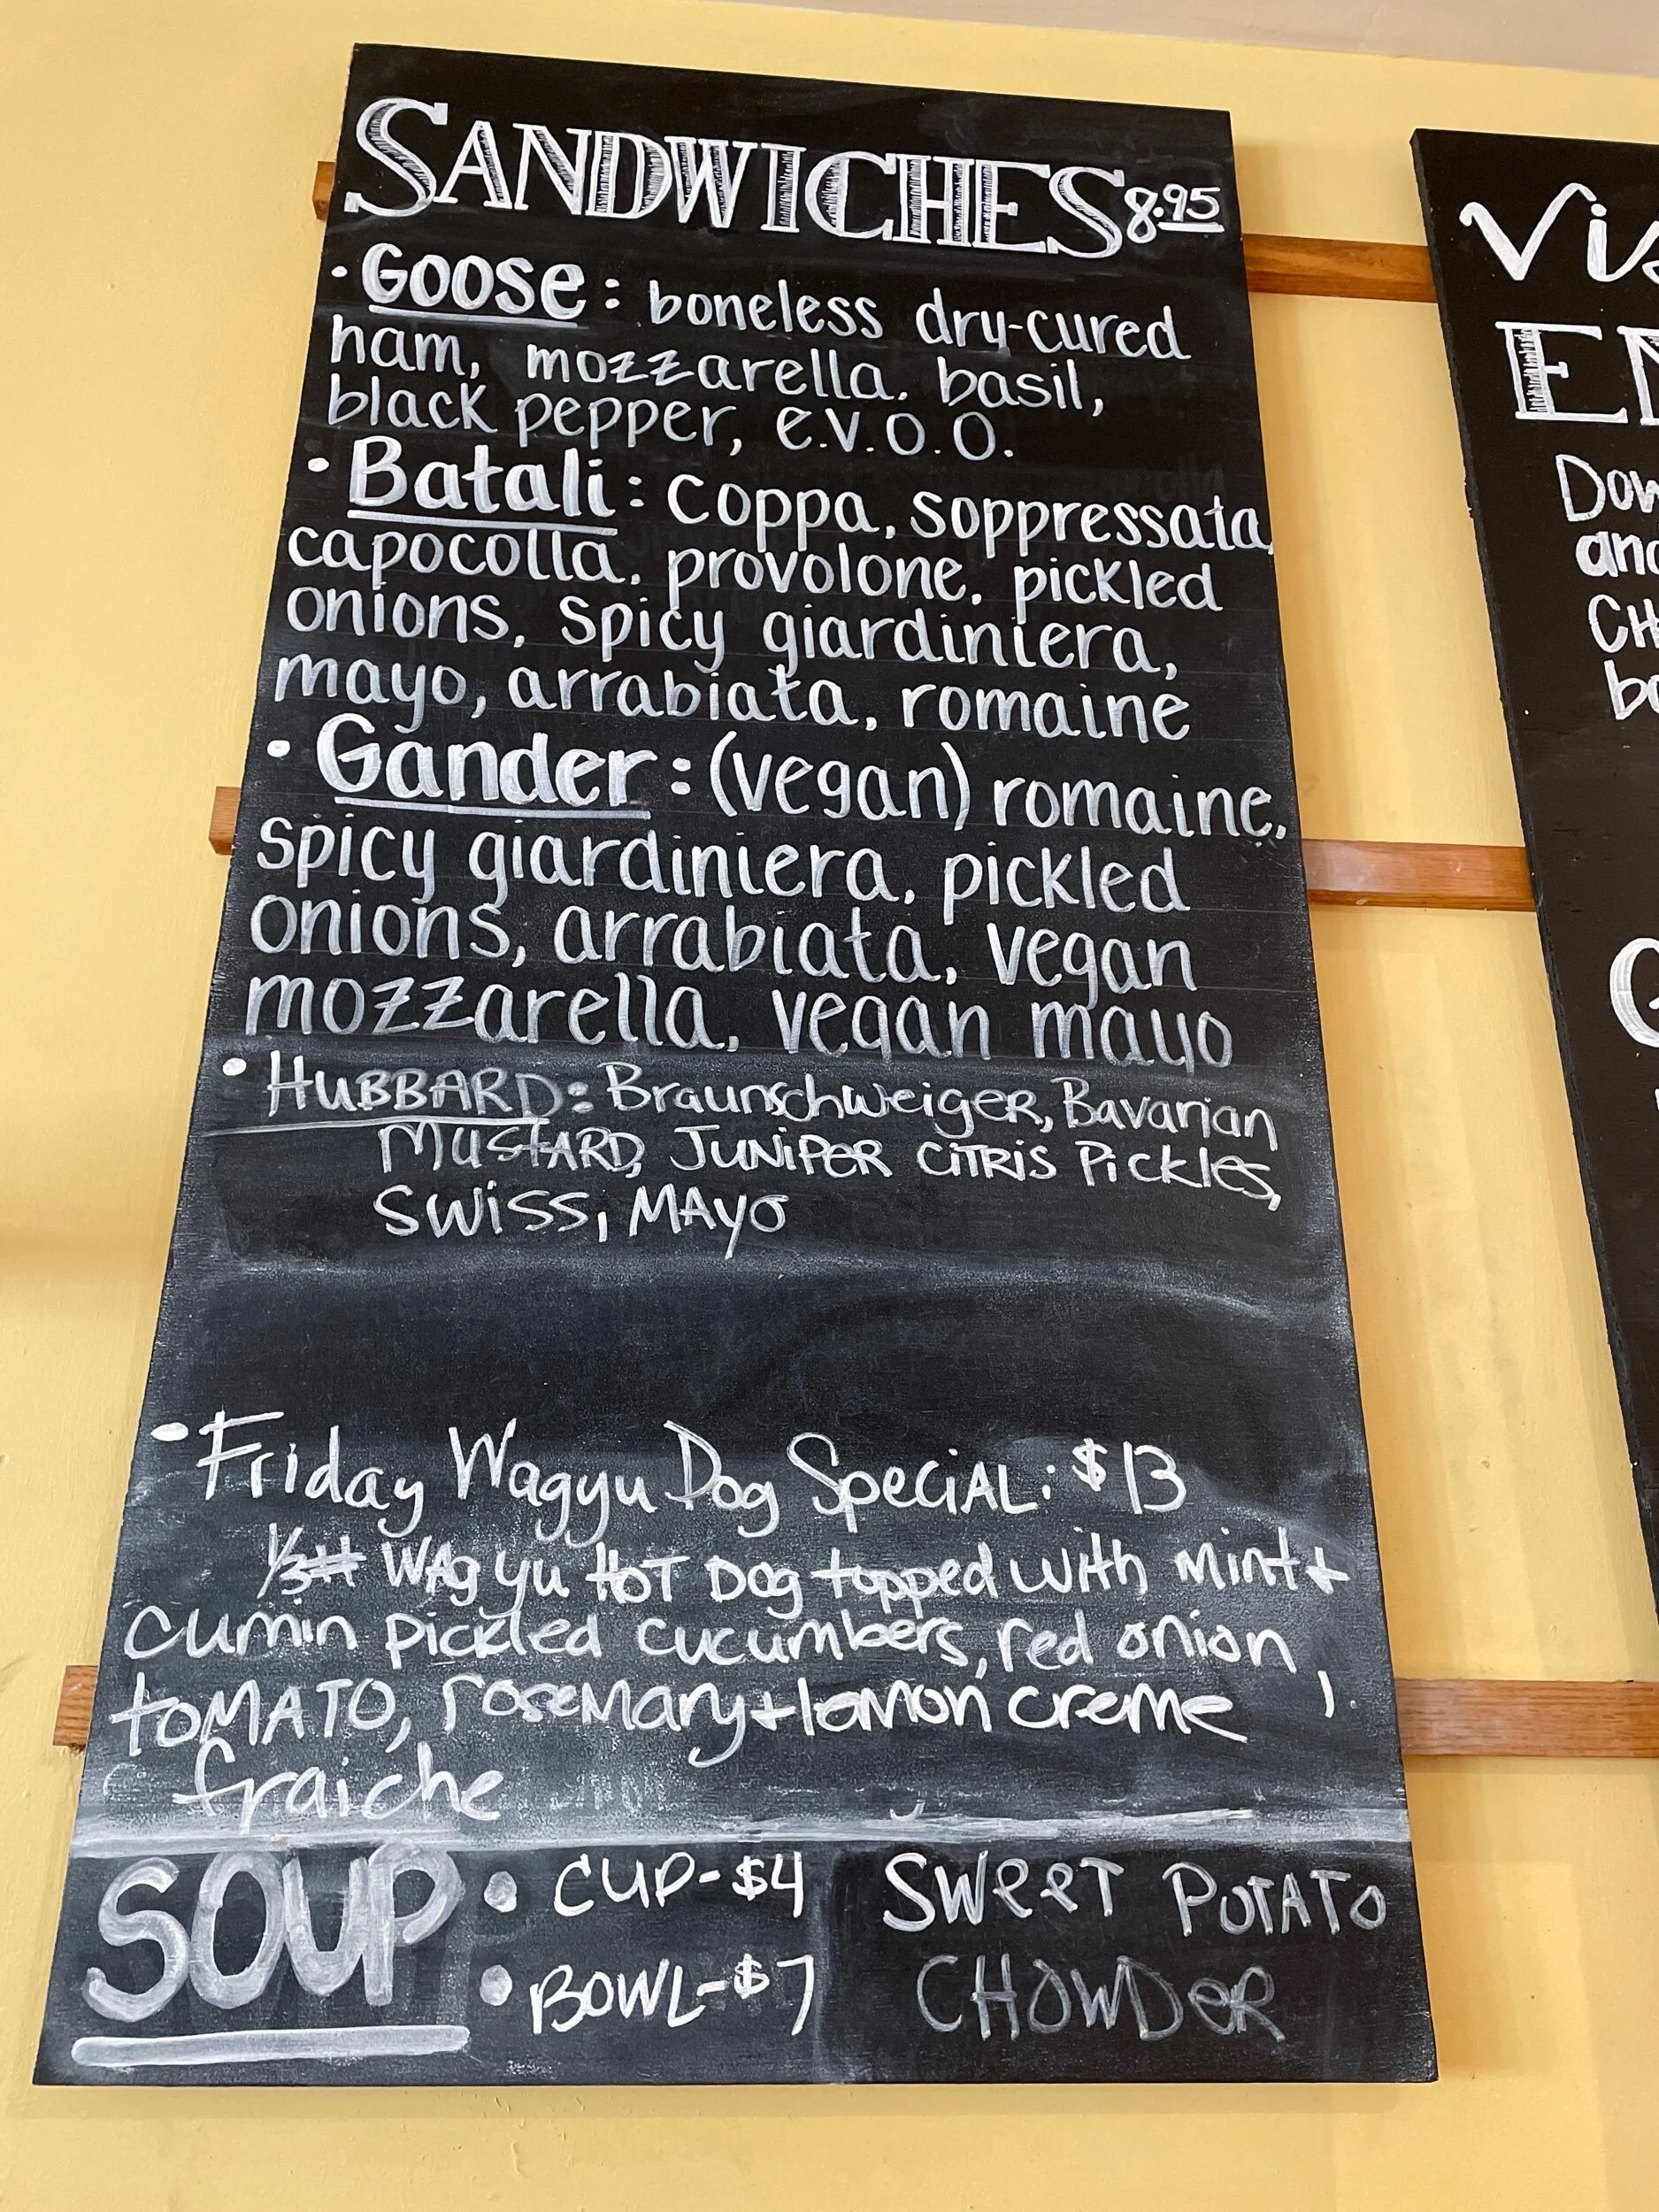 SANDWICHES 8.95
• Goose: boneless dry-cured
ham, mozzarella, basil,
black pepper, e.v.o.o.
• Batali: coppa, soppressata,
capocolla, provolone, pickled
onions, spicy giardiniera,
mayo, arrabiata, romaine
• Gander: (vegan) romaine,
spicy giardiniera, pickled
onions, arrabiata, vegan
mozzarella, vegan mayo
• HUBBARD: Braunschweiger, Bavarian
MUSTARD, JUNIPER CITRIS Pickles,
SWISS, MAYO
• Friday Wagyu Dog Special: $13
1/3# WAgyu HOT DOg topped with mint +
cumin pickled cucumbers, red onion,
tOMATO, rosemary + lemon creme
fraiche
SOUP • CUP-$4 SWEET POTATO
• BOWL-$7 CHOWDER
Vis
EN
Dow
and
CH
bo
G